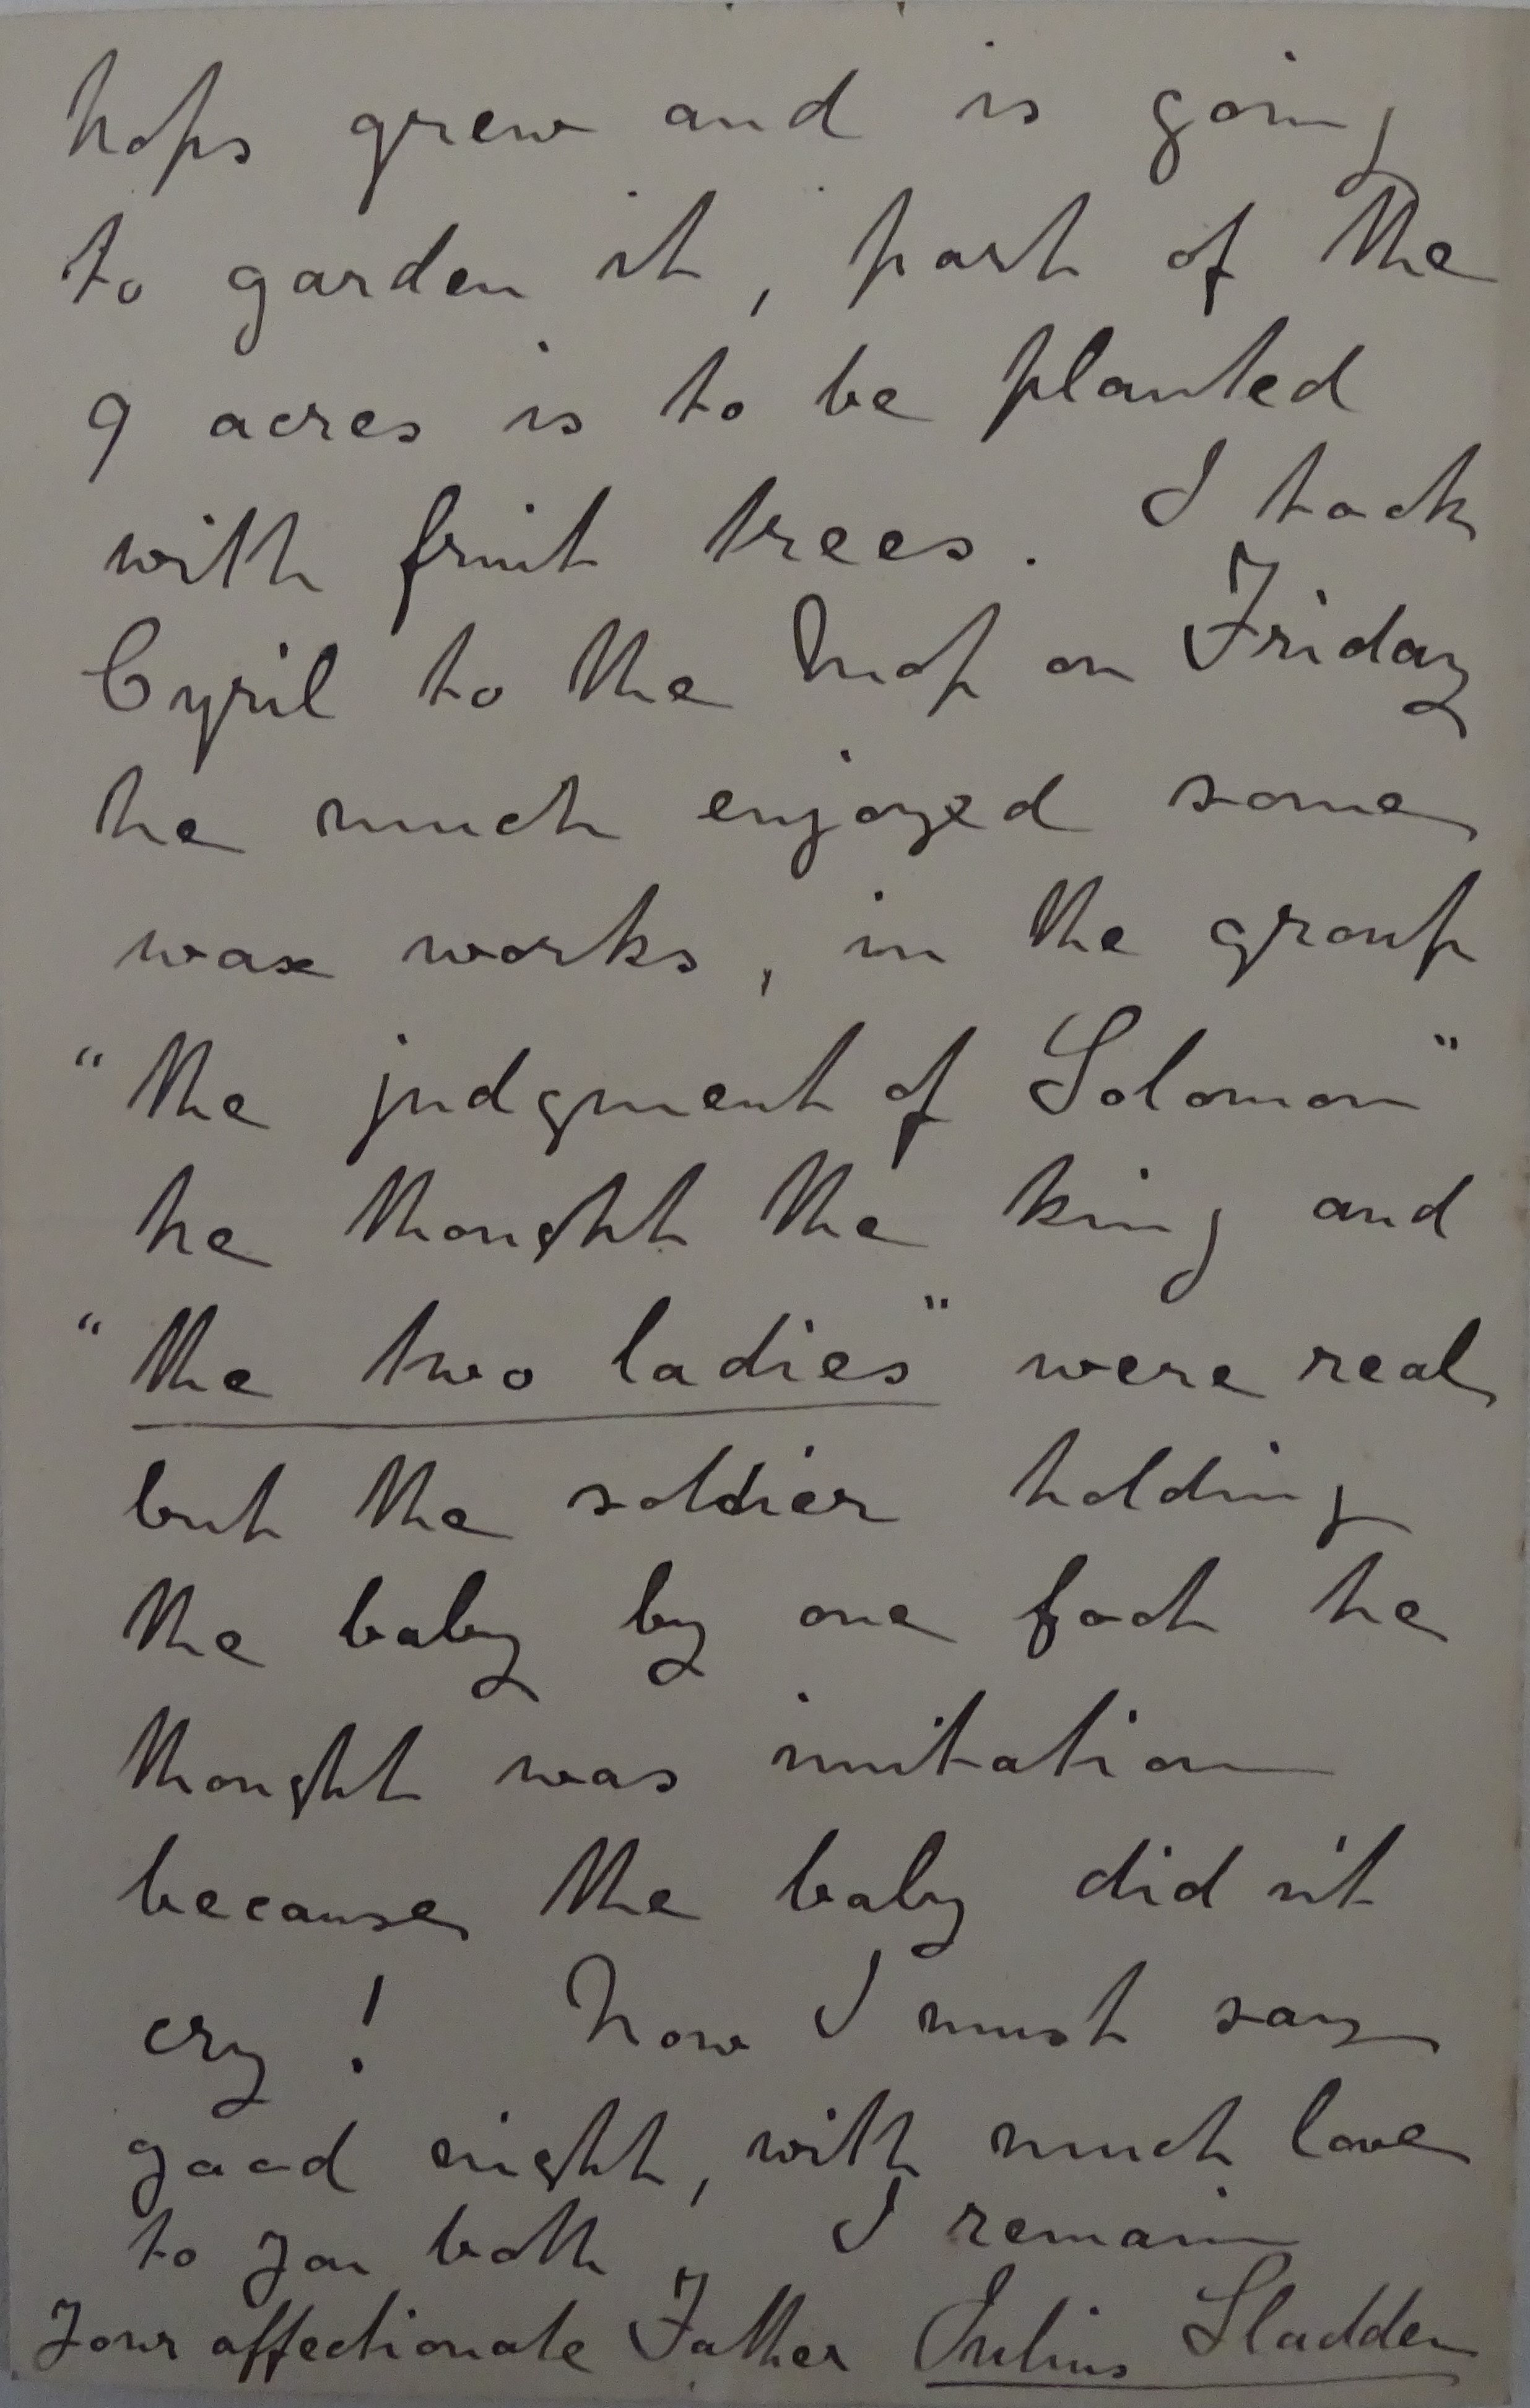 hops grew and is going
to garden it, part of the
9 acres is to be planted
with fruit trees. I took
Cyril to the Mop on Friday
he much enjoyed some
wax works, in the group
"the judgment of Solomon"
he thought the king and
"the two ladies" were real
but the soldier holding
the baby by one foot he
thought was imitation
because the baby did n't
cry! Now I must say
good night, with much love
to you both, I remain
Your affectionate Father Julius Sladden